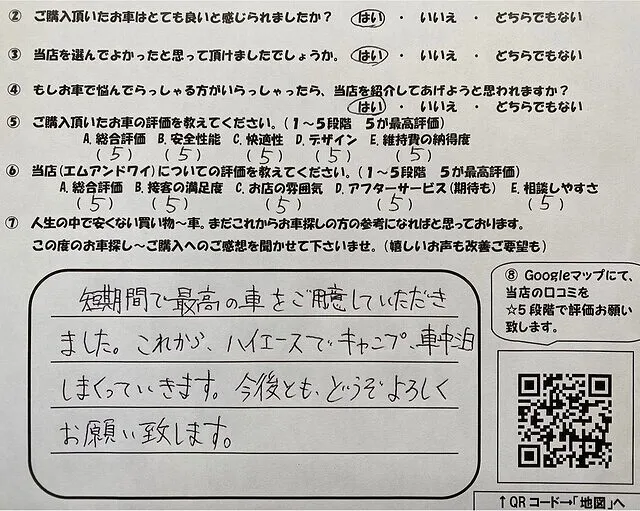 ② ご購入頂いたお車はとても良いと感じられましたか？ はい ・ いいえ ・ どちらでもない
③ 当店を選んでよかったと思って頂けましたでしょうか。 はい ・ いいえ ・ どちらでもない
④ もしお車で悩んでらっしゃる方がいらっしゃったら、当店を紹介してあげようと思われますか？
はい ・ いいえ ・ どちらでもない
⑤ ご購入頂いたお車の評価を教えてください。(１～５段階　５が最高評価)
A. 総合評価 B. 安全性能 C. 快適性 D. デザイン E. 維持費の納得度
(5) (5) (5) (5) (5)
⑥ 当店(エムアンドワイ)についての評価を教えてください。(１～５段階　５が最高評価)
A. 総合評価 B. 接客の満足度 C. お店の雰囲気 D. アフターサービス(期待も) E. 相談しやすさ
(5) (5) (5) (5) (5)
⑦ 人生の中で安くない買い物～車。まだこれからお車探しの方の参考になればと思っております。
この度のお車探し～ご購入へのご感想を聞かせて下さいませ。(嬉しいお声も改善ご要望も)
短期間で最高の車をご用意していただき
ました。これから、ハイエースでキャンプ、車中泊
しまくっていきます。今後とも、どうぞよろしく
お願い致します。
⑧ Googleマップにて、
当店の口コミを
☆５段階で評価お願い
致します。
↑QRコード→「地図」へ